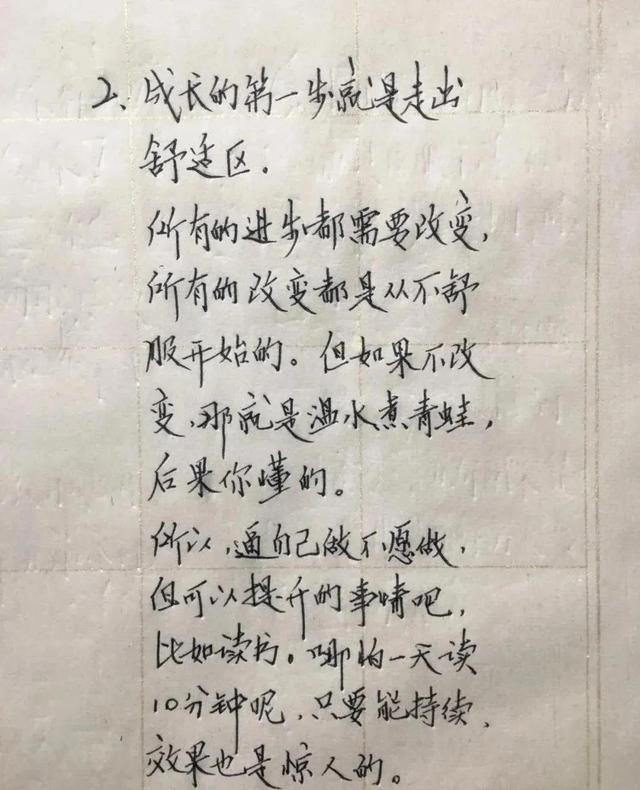 2、成长的第一步就是走出
舒适区.
所有的进步都需要改变,
所有的改变都是从不舒
服开始的。但如果不改
变,那就是温水煮青蛙,
后果你懂的。
所以,逼自己做不愿做,
但可以提升的事情吧,
比如读书。哪怕一天读
10分钟呢,只要能持续,
效果也是惊人的。